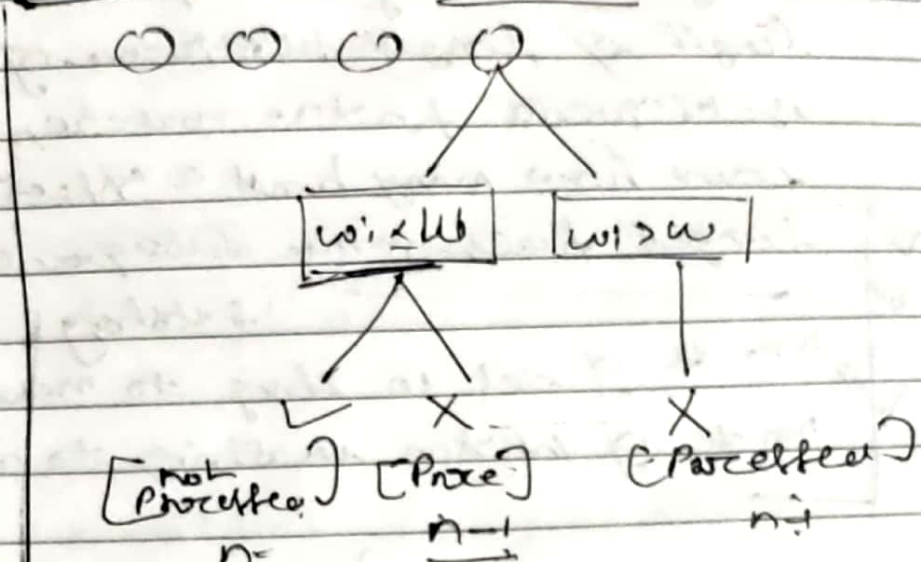 wi ≤ W wi > w
✓ X X
[not Processed] [Proce] [Processed]
n n-1 n-1